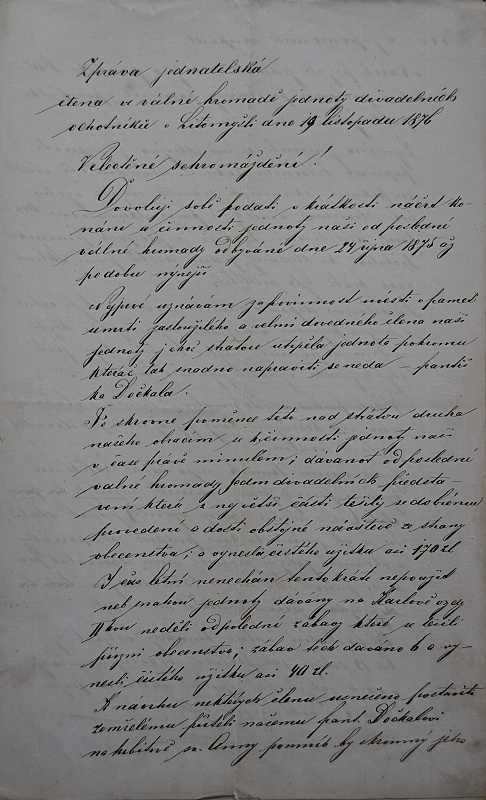 Zpráva jednatelská
čtena ve válné hromadě jednoty divadelních
ochotníků v Litomyšli dne 19 listopadu 1876
Velectěné schromáždění!
Dovoluji sobě podati v krátkosti náčrt ko-
nání a činnosti jednoty naší od poslední
válné hromady odbyváné dne 24 října 1875 až
po dobu nynejší
Nejprvé uznávám za povinnost uvésti v pamět
úmrtí zasloužilého a velmi dovedného člena naší
jednoty jehož ztrátou utrpěla jednota pohromu
kteráž tak snadno napraviti se nedá – Františ
ka Dočkala.
Po skrovné pomínce této nad ztrátou druha
našeho obracím se k činnosti jednoty naší
v čase právě minulém; dávanoť od poslední
valné hromady sedm divadelních předsta-
vení která z největší části těšily se dobrému
provedení a dosti obstojné návštěvě ze strany
obecenstva; a vynesla čistého užitku asi 170 zl
I čas letní nenechán tentokráte nepoužit
neb snahou jednoty dávány na Karlově vždy
kou neděli odpolední zábavy které se těšily
přízni obecenstva; zábav těch dáváno 6 a vy-
nesli čistého užitku asi 40 zl.
K návrhu některých členů usnešeno postaviti
zemřelému příteli našemu Frant. Dočkalovi
na hřbitově sv. Anny pomník by skromný jeho